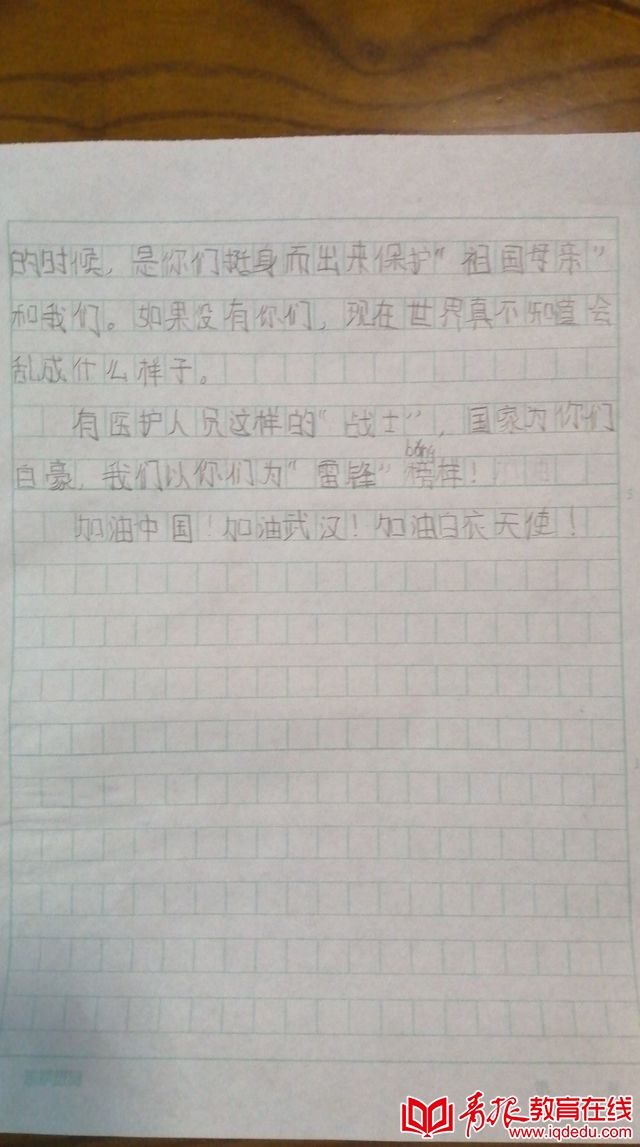 的时候，是你们挺身而出来保护“祖国母亲”
和我们。如果没有你们，现在世界真不知道会
乱成什么样子。
有医护人员这样的“战士”，国家为你们
自豪，我们以你们为“雷锋”榜样！
bǎng
加油中国！加油武汉！加油白衣天使！
青报教育在线
www.iqdedu.com